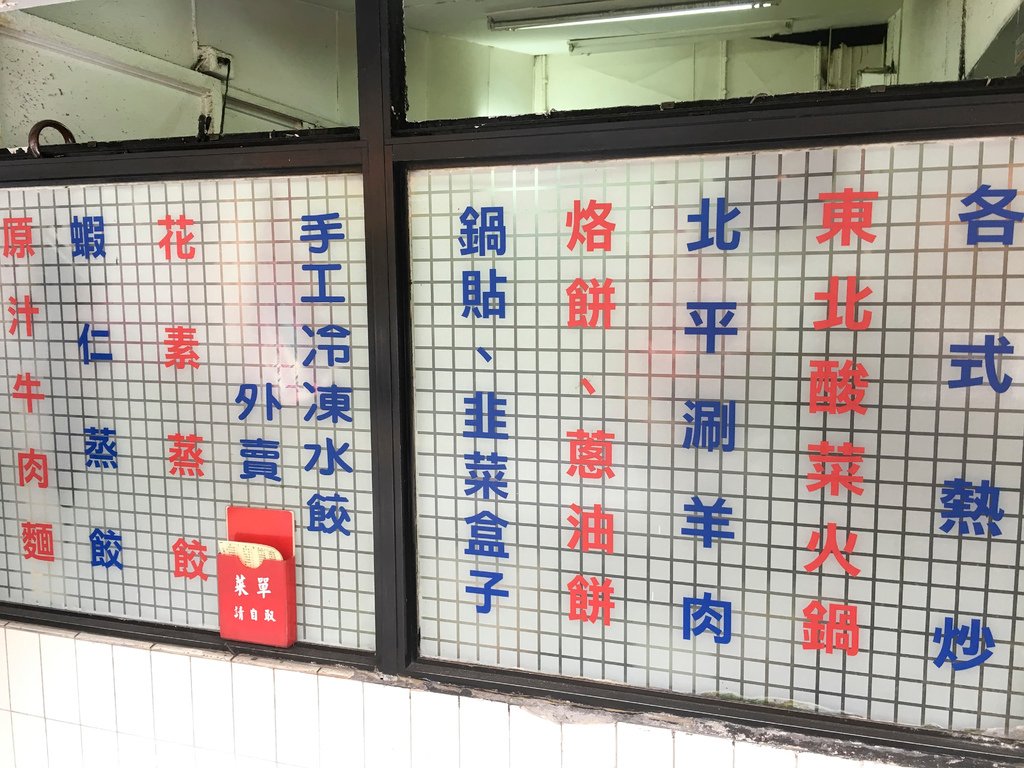 各式熱炒
東北酸菜火鍋
北平涮羊肉
烙餅、蔥油餅
鍋貼、韭菜盒子
手工冷凍水餃
外賣
花素蒸餃
蝦仁蒸餃
原汁牛肉麵
菜單
請自取